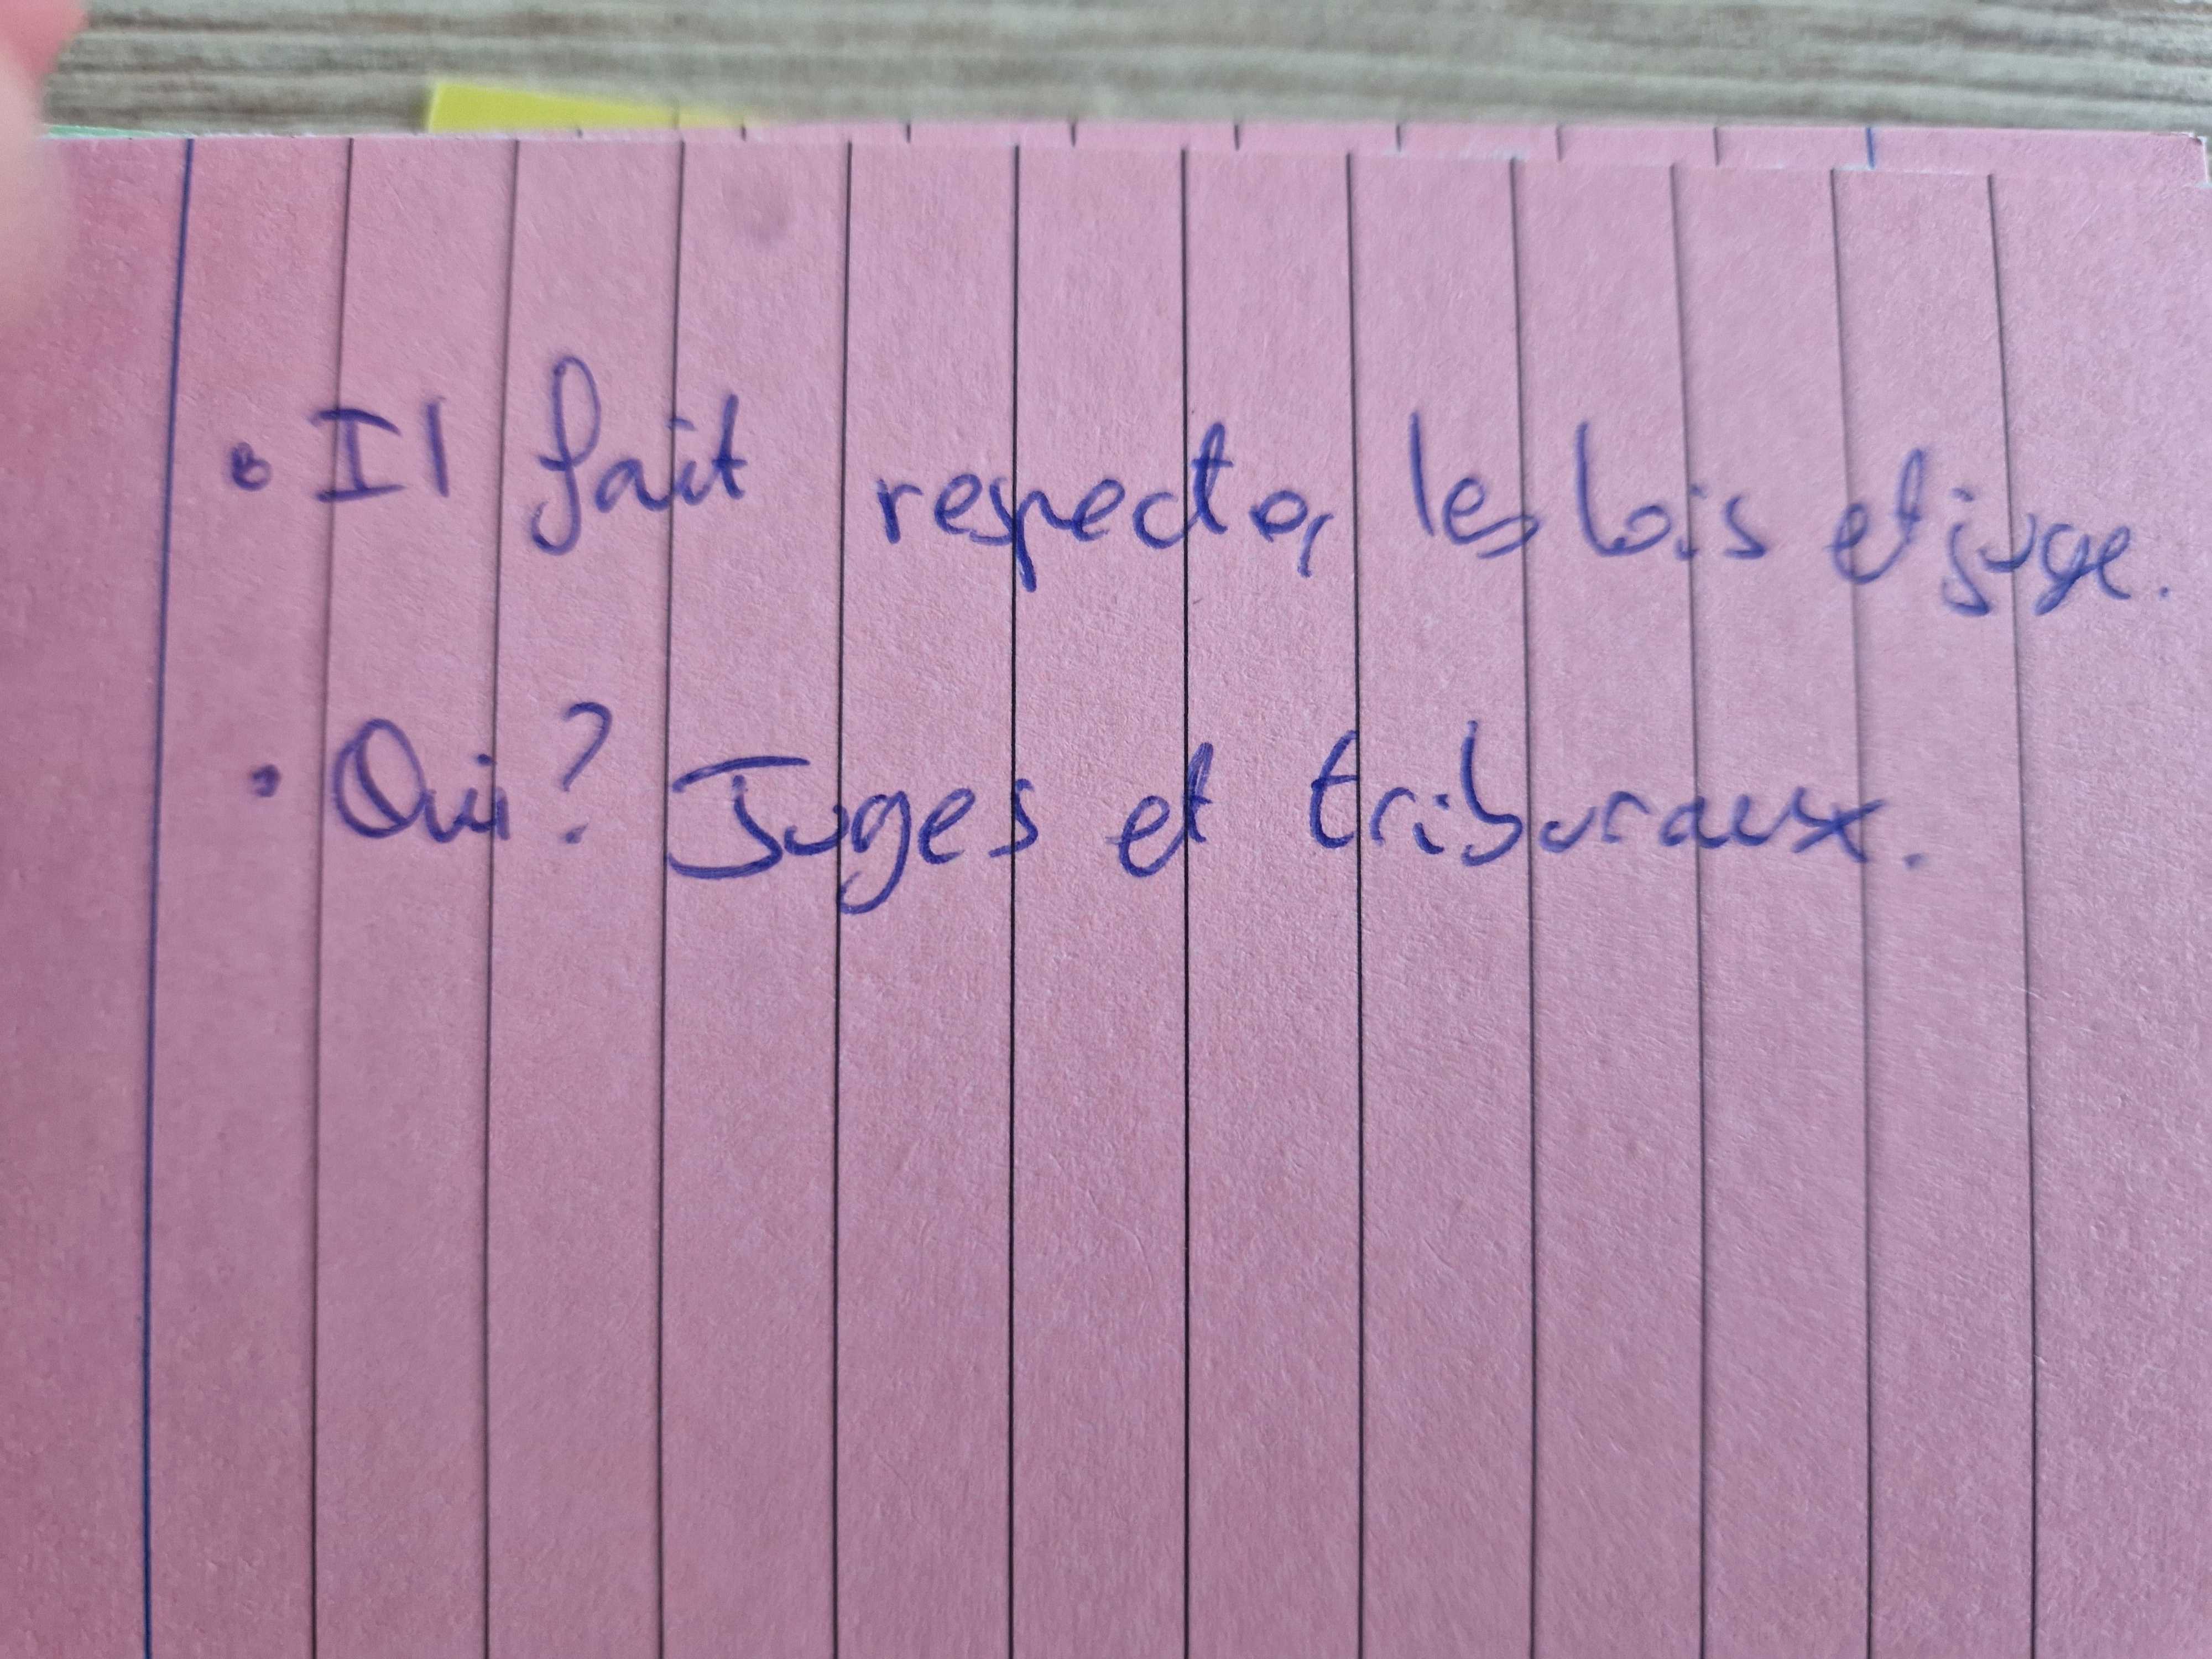 • Il fait respecter les lois et juge.
• Qui? Juges et tribunaux.